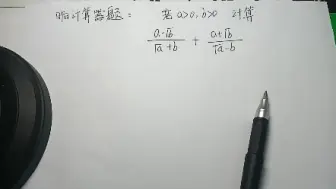 计算题： 若 a>0, b>0 计算
(a-√b)/(√a+b) + (a+√b)/(√a-b)